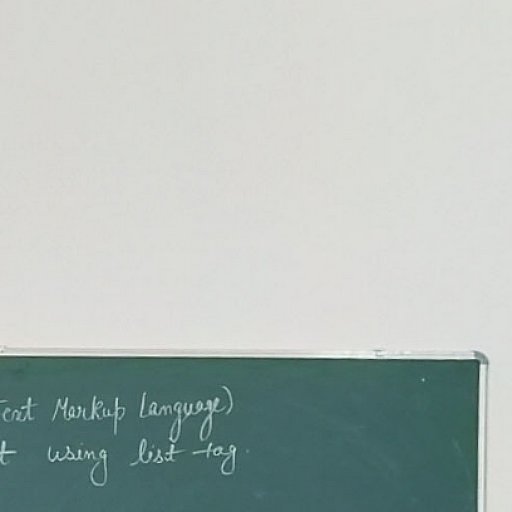 Text Markup Language)
t using list tag.